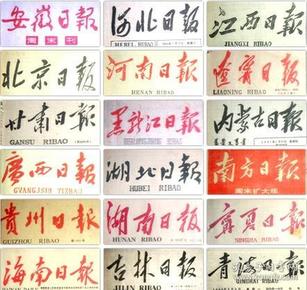 安徽日報
周末刊
河北日报
HEBEI RIBAO
江西日报
JIANGXI RIBAO
北京日报
河南日报
HENAN RIBAO
辽宁日报
LIAONING RIBAO
甘肃日报
GANSU RIBAO
黑龙江日报
内蒙古日报
廣西日报
GVANGJSIH YIZBAU
湖北日报
HUBEI RIBAO
南方日报
周末扩大版
贵州日报
GUIZHOU RIBAO
湖南日报
HUNAN RIBAO
宁夏日报
NINGXIA RIBAO
海南日报
HAINAN RIBAO
吉林日报
JILIN RIBAO
青海日报
QINGHAI RIBAO